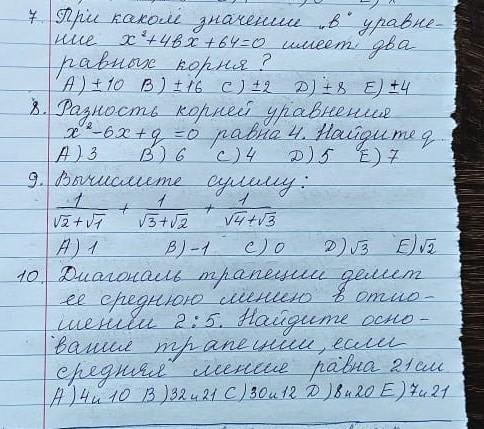 7. При каком значении „в" уравне-
ние x²+4вx+64=0 имеет два
равных корня?
A) ±10 B) ±16 C) ±2 D) ±8 E) ±4
8. Разность корней уравнения
x²-6x+q=0 равна 4. Найдите q
A) 3 B) 6 C) 4 D) 5 E) 7
9. Вычислите сумму:
1/(√2+√1) + 1/(√3+√2) + 1/(√4+√3)
A) 1 B) -1 C) 0 D) √3 E) √2
10. Диагональ трапеции делит
ее среднюю линию в отно-
шении 2:5. Найдите осно-
вание трапеции, если
средняя линие равна 21 см
A) 4 и 10 B) 32 и 21 C) 30 и 12 D) 8 и 20 E) 7 и 21